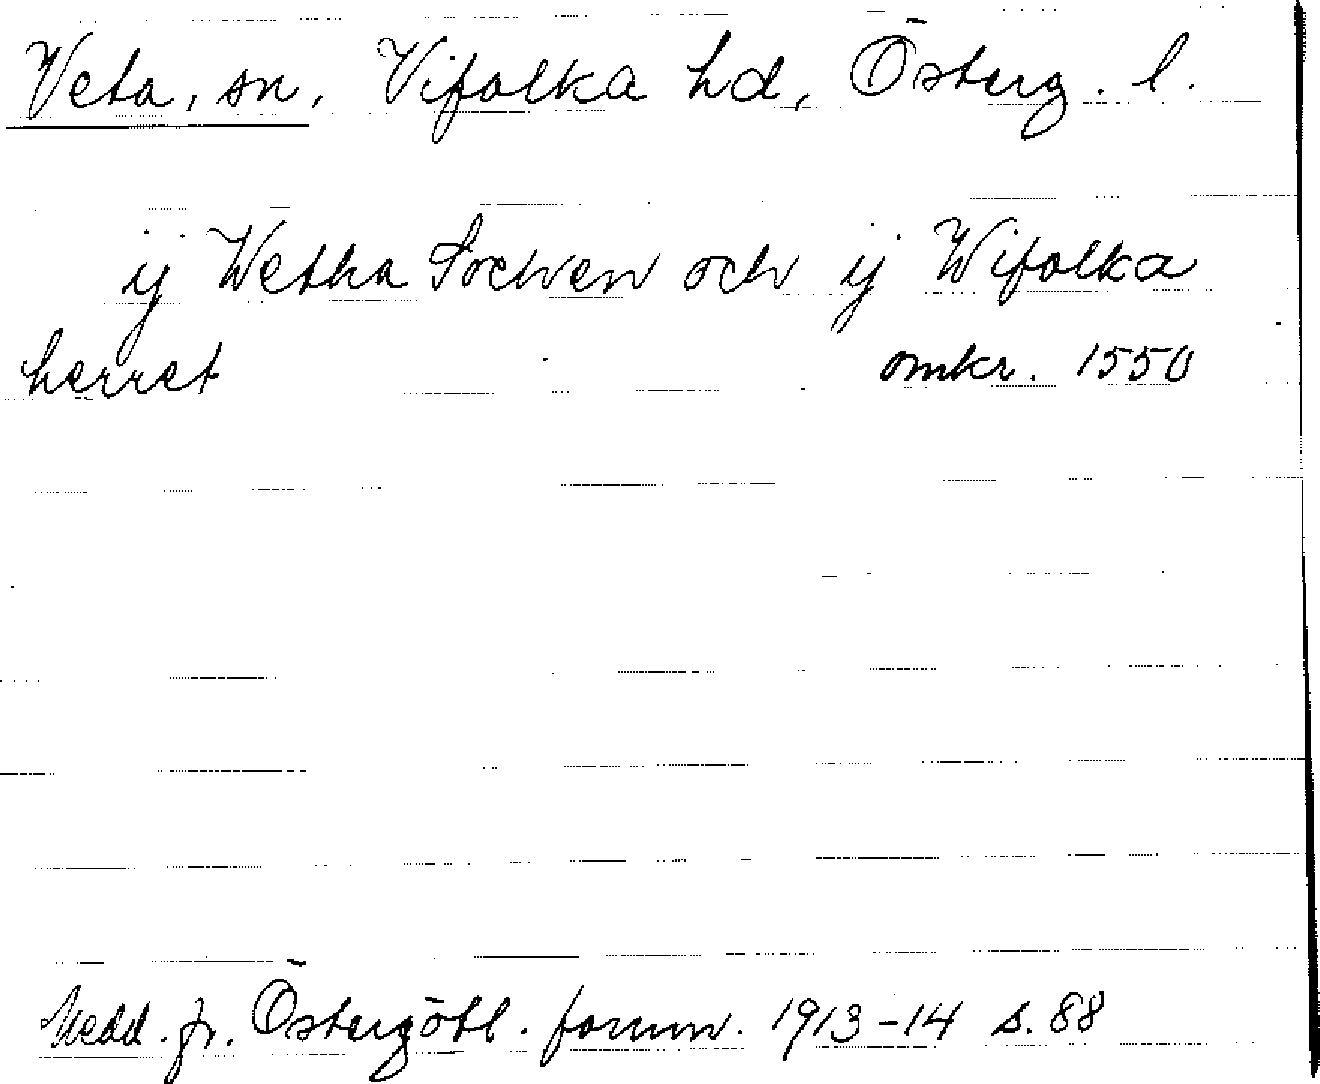 Veta, sn, Vifolka hd, Österg. l.
ij Wetha Sochen och ij Wifolka
herret omkr. 1550
Medd. fr. Östergötl. fornm. 1913-14 s. 88